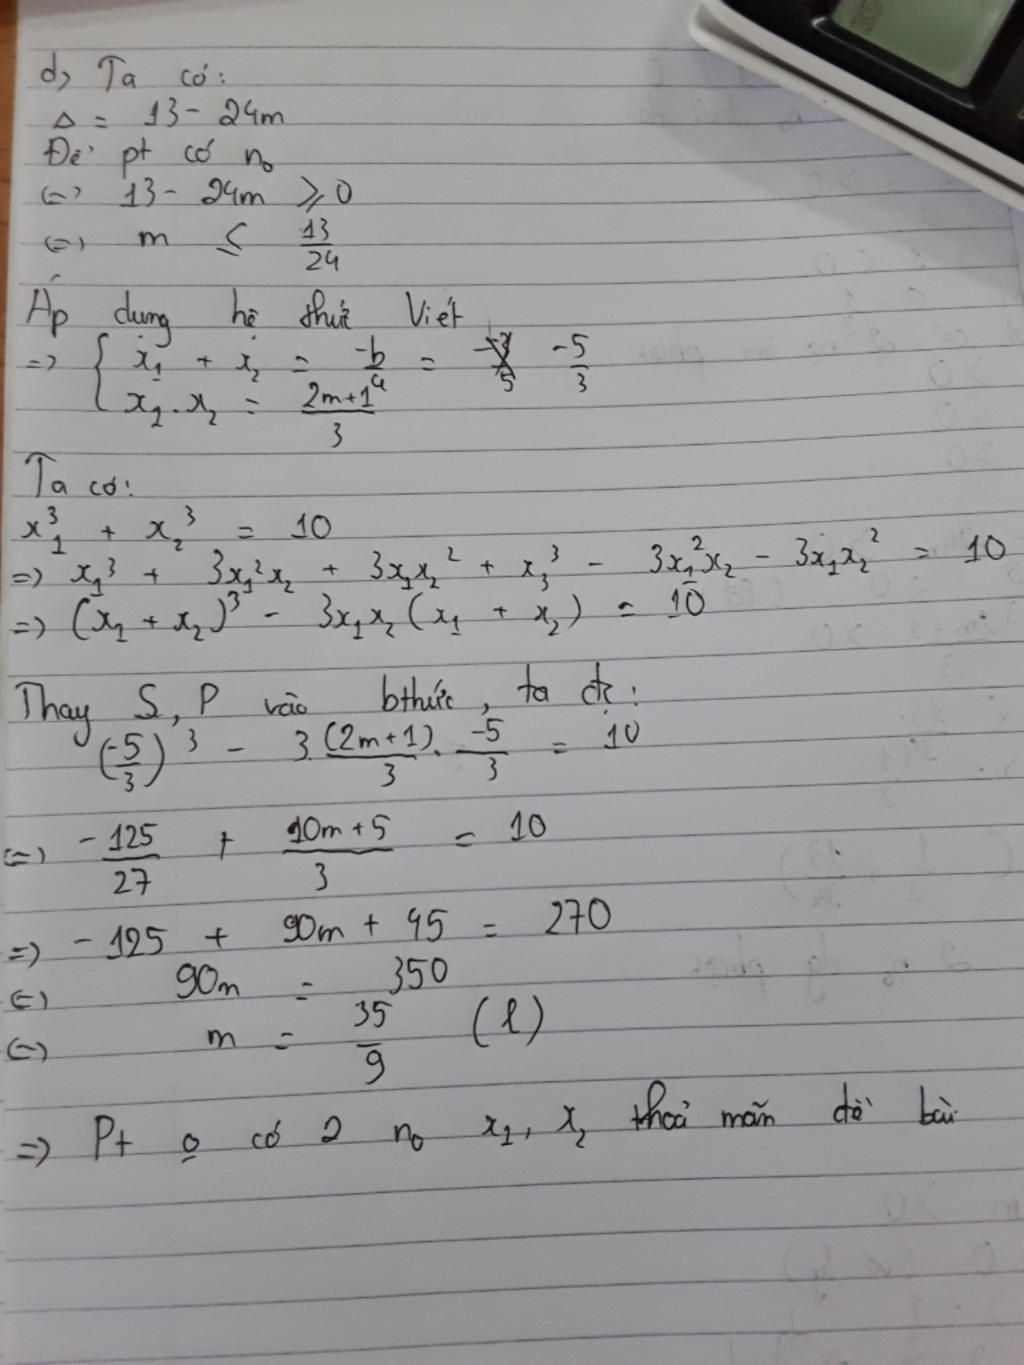 d, Ta có:
Δ = 13 - 24m
Để pt có n₀
(=) 13 - 24m ⩾ 0
(=) m ≤ 13/24
Áp dụng hệ thức Viét
=> { x₁ + x₂ = -b/a = -5/3
x₁.x₂ = (2m+1)/3
Ta có:
x₁³ + x₂³ = 10
=) x₁³ + 3x₁²x₂ + 3x₁x₂² + x₃³ - 3x₁²x₂ - 3x₁x₂² = 10
=) (x₁ + x₂)³ - 3x₁x₂(x₁ + x₂) = 10
Thay S, P vào bthức, ta đc:
(-5/3)³ - 3.(2m+1)/3 . -5/3 = 10
(=) -125/27 + (10m+5)/3 = 10
=) -125 + 90m + 45 = 270
(=) 90m = 350
(=) m = 35/9 (l)
=) Pt o có 2 n₀ x₁, x₂ thoả mãn đề bài